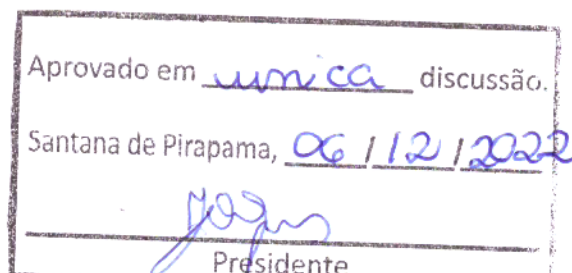 Aprovado em unica discussão.
Santana de Pirapama, 06/12/2022
Presidente